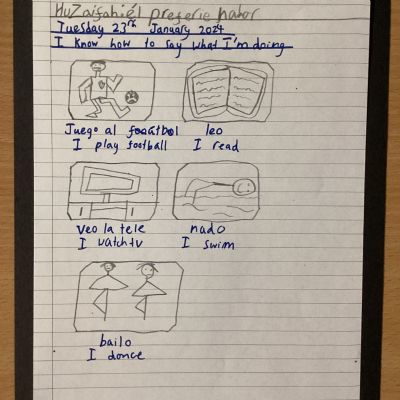 HuZaifah él preferie nador
Tuesday 23rd January 2024
I know how to say what I'm doing
Juego al fútbol leo
I play football I read
veo la tele nado
I watch tv I swim
bailo
I donce